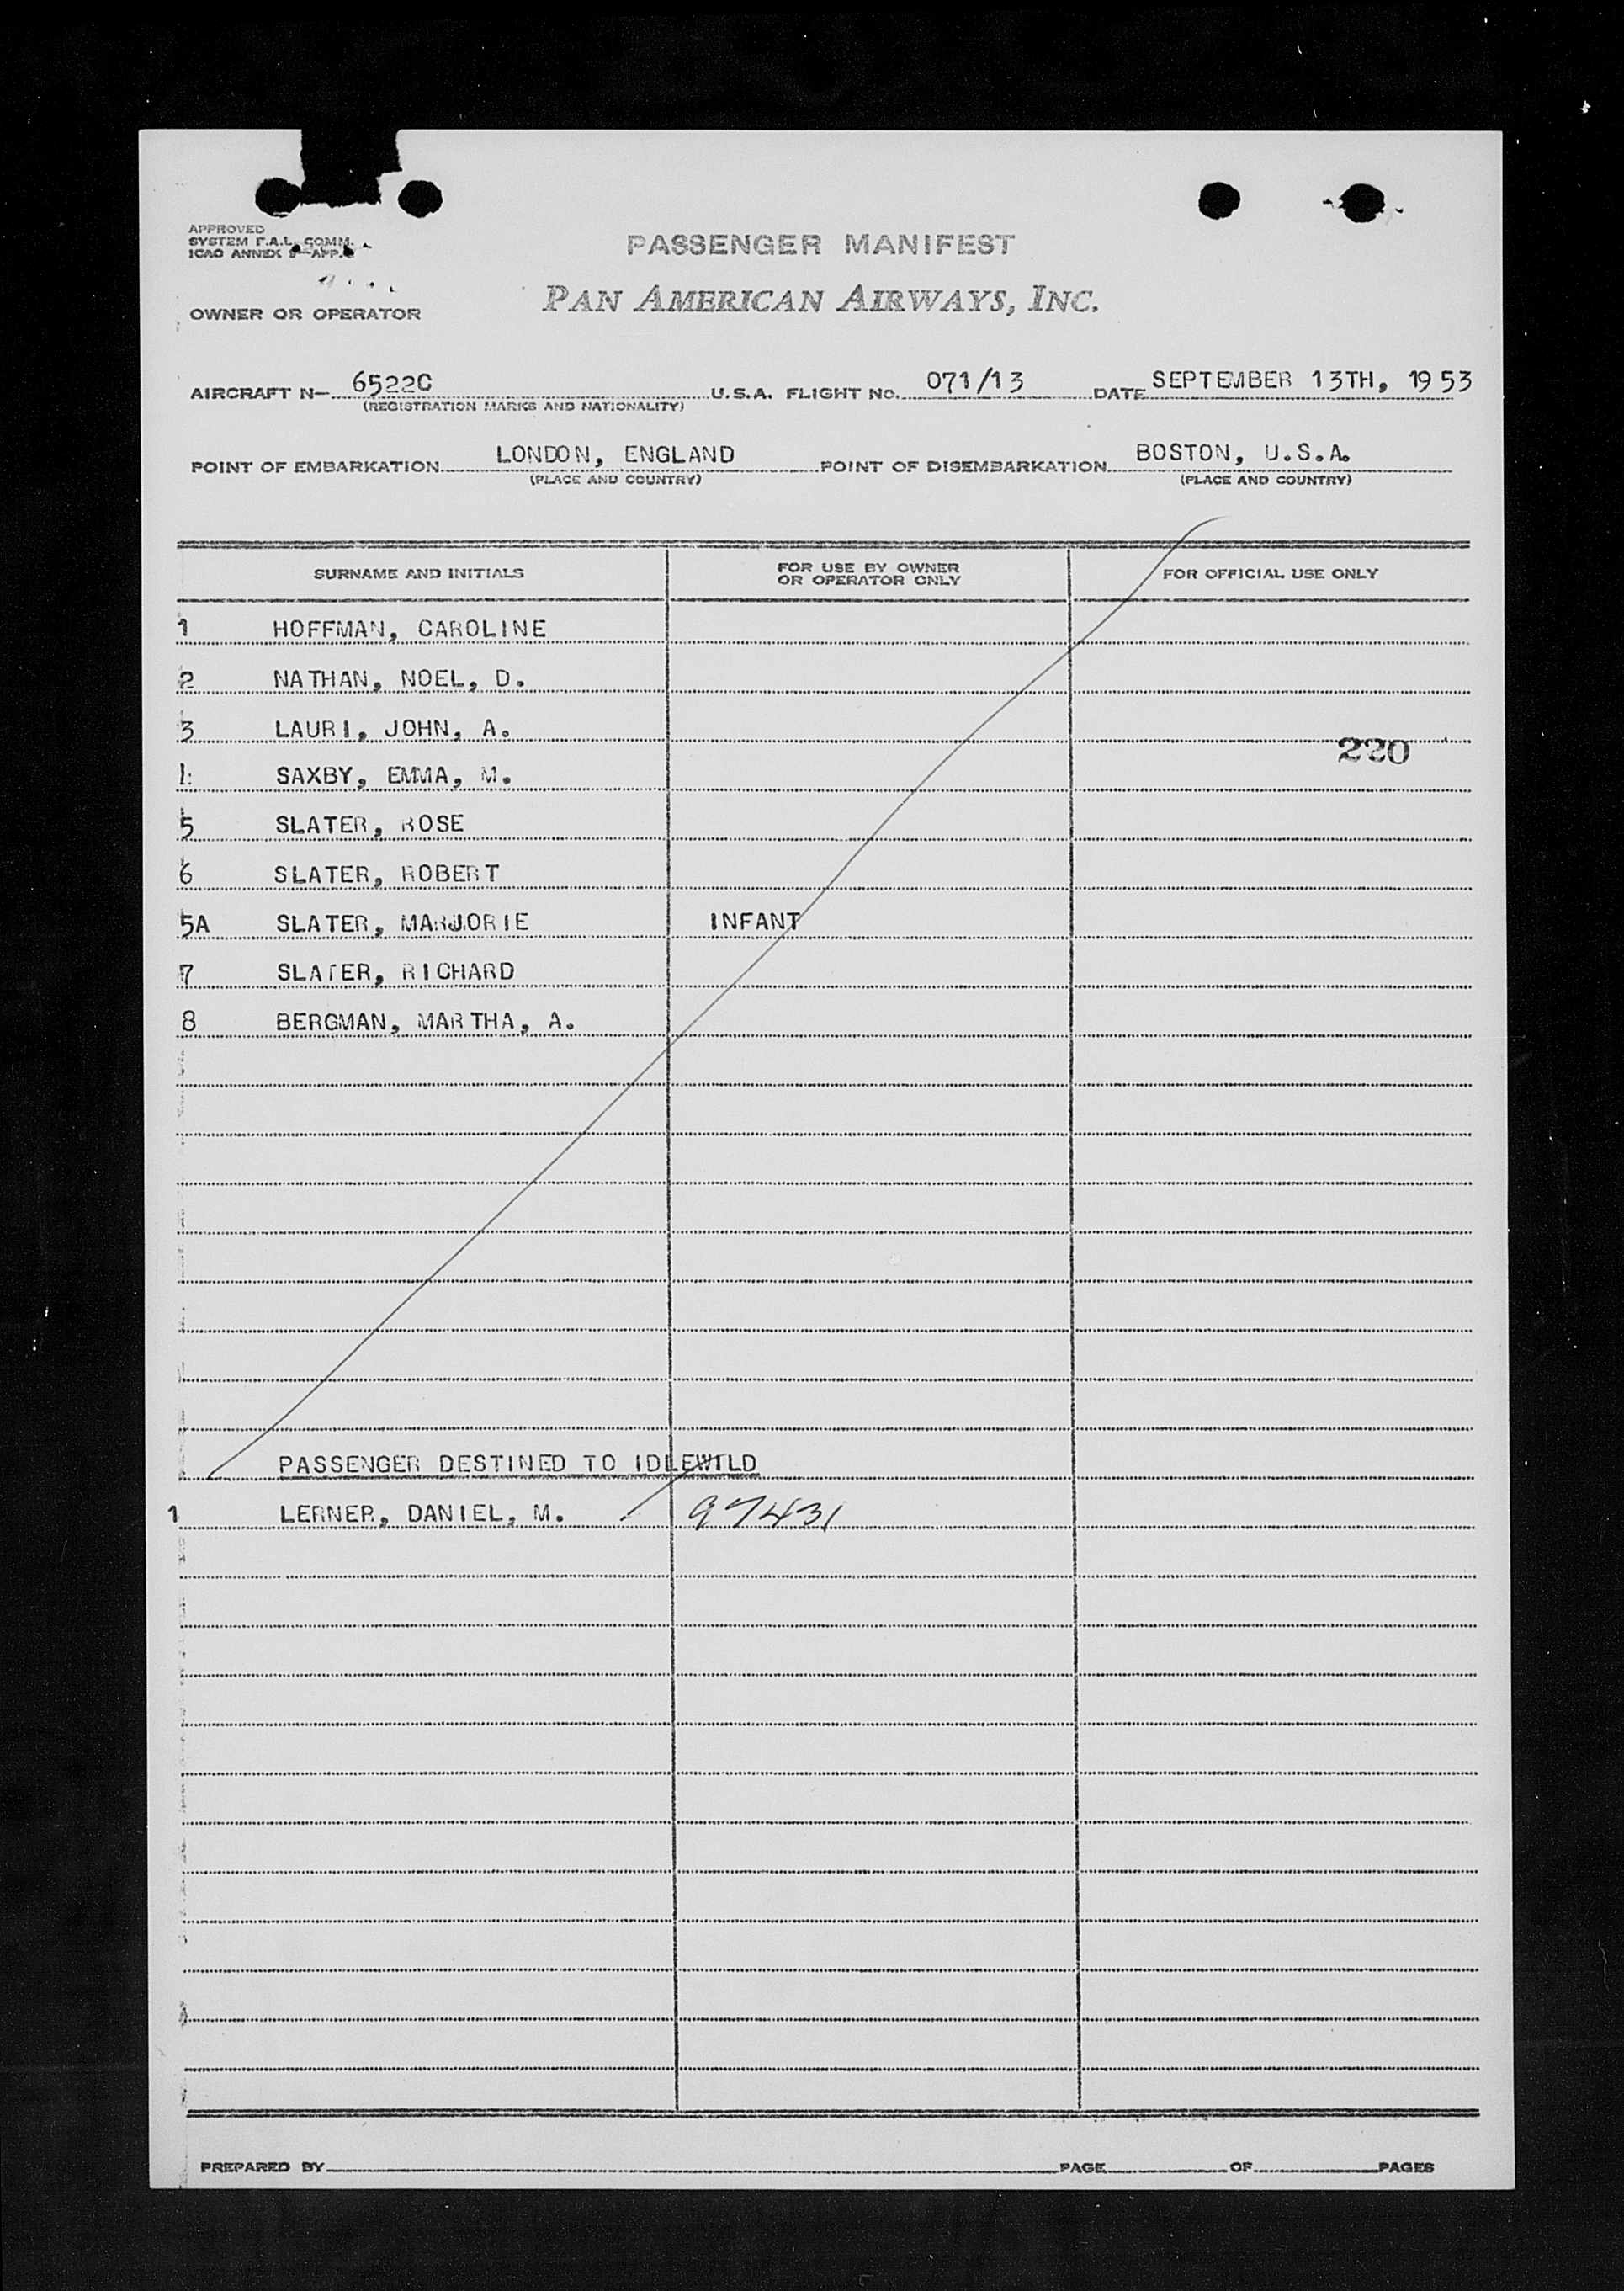 APPROVED
SYSTEM F.A.L. COMM.
ICAO ANNEX 9-APP.
PASSENGER MANIFEST
OWNER OR OPERATOR PAN AMERICAN AIRWAYS, INC.
AIRCRAFT N- 6522C U.S.A. FLIGHT NO. 071/13 DATE SEPTEMBER 13TH, 1953
(REGISTRATION MARKS AND NATIONALITY)
POINT OF EMBARKATION LONDON, ENGLAND POINT OF DISEMBARKATION BOSTON, U.S.A.
(PLACE AND COUNTRY) (PLACE AND COUNTRY)
SURNAME AND INITIALS FOR USE BY OWNER OR OPERATOR ONLY FOR OFFICIAL USE ONLY
1 HOFFMAN, CAROLINE
2 NATHAN, NOEL, D.
3 LAURI, JOHN, A.
220
SAXBY, EMMA, M.
5 SLATER, ROSE
6 SLATER, ROBERT
5A SLATER, MARJORIE INFANT
7 SLATER, RICHARD
8 BERGMAN, MARTHA, A.
PASSENGER DESTINED TO IDLEWILD
1 LERNER, DANIEL, M. 97431
PREPARED BY PAGE OF PAGES